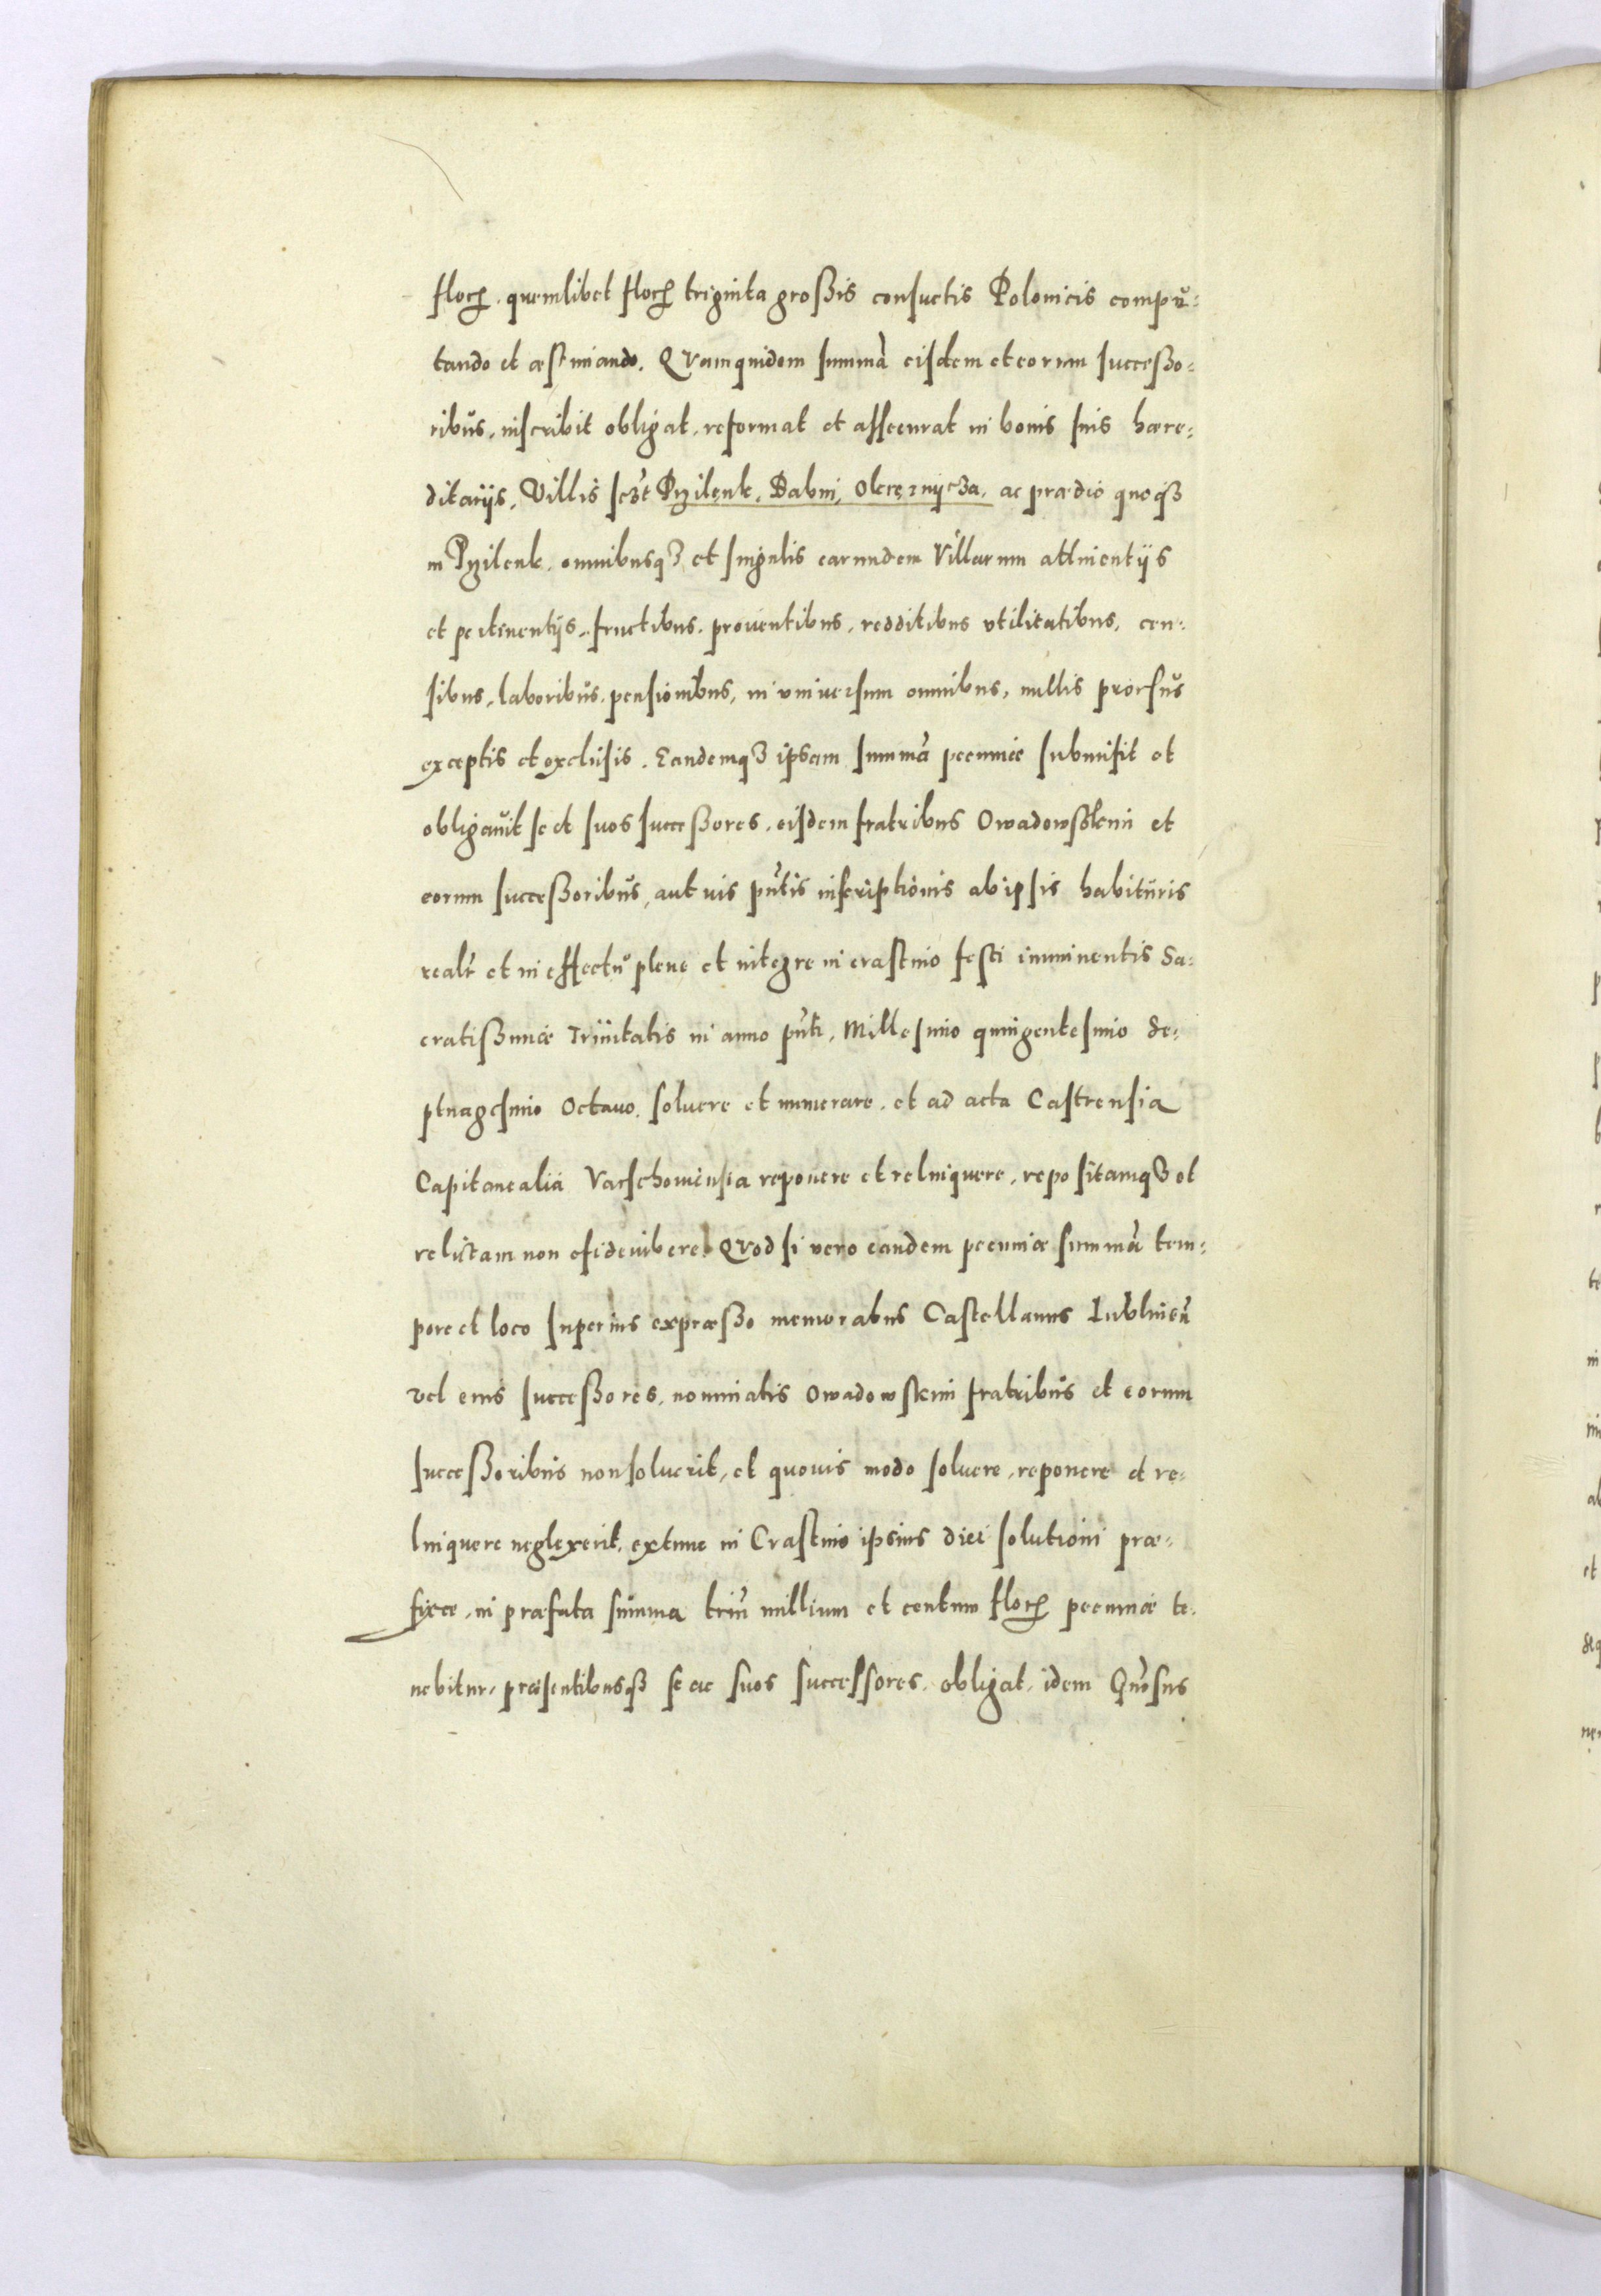 floꝝ. quemlibet floꝝ triginta großis consuetis Polonicis compu-
tando et æstimando. Quamquidem summã eisdem et eorum succeßo-
ribus, inscribit obligat, reformat et assecurat in bonis suis hære-
ditarijs, Villis scꝫt Pzilenk, Babin, Olcrznycza, ac prædio quoqꝫ
in Pzilenk. omnibusqꝫ et singulis earundem Villarum attinentijs
et pertinentijs, fructibus, prouentibus, redditibus vtilitatibus, cen-
sibus, laboribus, pensionibus, in vniuersum omnibus, nullis prorsus
exceptis et exclusis. Eandemqꝫ ipsam summã pecuniæ submisit et
obligauit se et suos succeßores, eisdem fratribus Owadowskeni et
eorum succeßoribus, aut uis pñtis inscriptionis ab ipsis habituris
realr̃ et in effectu plene et integre in crastino festi imminentis Sa-
cratißimæ Trinitatis in anno pñti, Millesimo quingentesimo Se-
ptuagesimo Octauo. soluere et numerare, et ad acta Castrensia
Capitanealia Varschouiensia reponere et relinquere, repositamqꝫ et
relictam non
Quod si vero eandem pecuniæ summã tem-
pore et loco superius expræßo memorabus Castellanus Lublineñ
vel eius succeßores, nominatis Owadowskeni fratribus et eorum
succeßoribus non soluerit, et quouis modo soluere, reponere et re-
linquere neglexerit, extunc in Crastino ipsius diei solutioni præ-
fixæ, in præfata summa triũ millium et centum floꝝ pecuniæ te-
nebitur, præsentibusqꝫ se ac suos successores, obligat, idem Gñosus